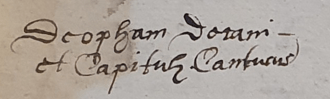 Deopham Decani
et Capituli Cantuar